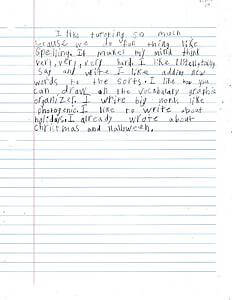 I like turoting so much
because we do fun thing like
spelling. It makes my mind think
very, very, very hard. I like
say and write I like adding new
words to the sorts. I like how you
can draw on the vocabulary graphic
organizer. I write big words like
photogenic. I like to write about
holidays. I already wrote about
Christmas and Halloween.